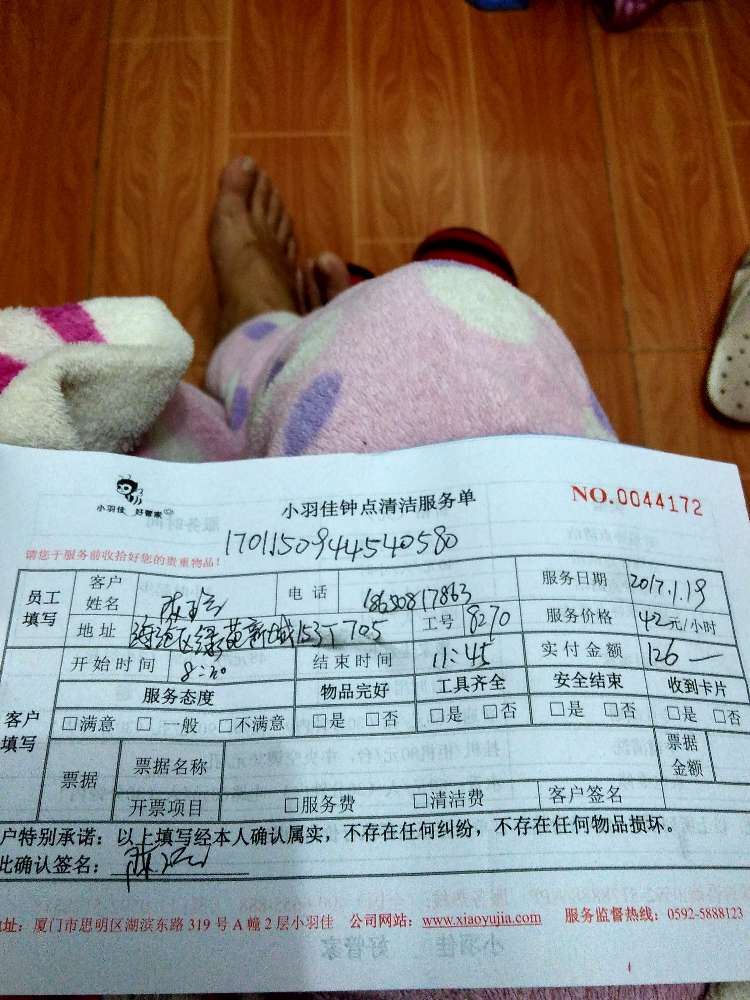 小羽佳 好管家
小羽佳钟点清洁服务单
NO.0044172
1701150944540580
请您于服务前收拾好您的贵重物品!
员工填写
客户姓名
电话 18650817863
服务日期 2017.1.19
地址 海沧区绿苑新城153丁705
工号 8270
服务价格 42元/小时
客户填写
开始时间 8:30
结束时间 11:45
实付金额 126一
服务态度 物品完好 工具齐全 安全结束 收到卡片
□满意 □一般 □不满意 □是 □否 □是 □否 □是 □否 □是 □否
票据
票据名称
票据金额
开票项目 □服务费 □清洁费 客户签名
户特别承诺:以上填写经本人确认属实,不存在任何纠纷,不存在任何物品损坏。
此确认签名:
址:厦门市思明区湖滨东路319号A幢2层小羽佳 公司网站:www.xiaoyujia.com 服务监督热线:0592-5888123